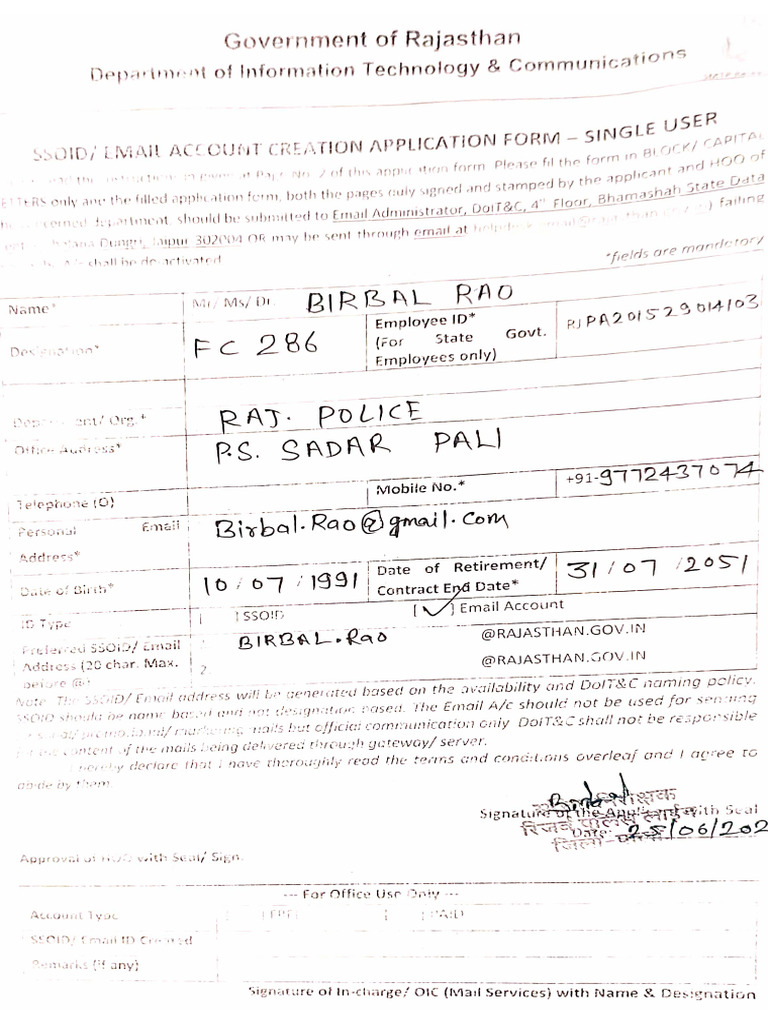 Government of Rajasthan
Department of Information Technology & Communications
SSOID/ EMAIL ACCOUNT CREATION APPLICATION FORM – SINGLE USER
of this application form. Please fil the form in BLOCK/ CAPITAL
LETTERS only and the filled application form, both the pages duly signed and stamped by the applicant and HOO of
the concerned department, should be submitted to Email Administrator, DoIT&C, 4th Floor, Bhamashah State Data
Jaipur 302004 OR may be sent through email at failing
A/c shall be de-activated.
*fields are mandatory
Name* Mr/ Ms/ Dr. BIRBAL RAO
Designation* FC 286 Employee ID* (For State Govt. Employees only) RJPA201529014103
Department/ Org.* RAJ. POLICE
Office Address* P.S. SADAR PALI
Telephone (O) Mobile No.* +91-9772437074
Personal Email Address* Birbal.Rao@gmail.com
Date of Birth* 10/07/1991 Date of Retirement/ Contract End Date* 31/07/2051
ID Type [ ] SSOID [✓] Email Account
Preferred SSOID/ Email 1. BIRBAL.Rao @RAJASTHAN.GOV.IN
Address (20 char. Max. before @) 2. @RAJASTHAN.GOV.IN
Note: The SSOID/ Email address will be generated based on the availability and DoIT&C naming policy.
SSOID should be name based and not designation based. The Email A/c should not be used for sending
personal/ promotional/ marketing mails but official communication only. DoIT&C shall not be responsible
for the content of the mails being delivered through gateway/ server.
I hereby declare that I have thoroughly read the terms and conditions overleaf and I agree to
abide by them.
Signature of the Applicant with Seal
Date: 25/06/202
Approval of HOO with Seal/ Sign.
--- For Office Use Only ---
Account Type [ ] FREE [ ] PAID
SSOID/ Email ID Created
Remarks (if any)
Signature of In-charge/ OIC (Mail Services) with Name & Designation